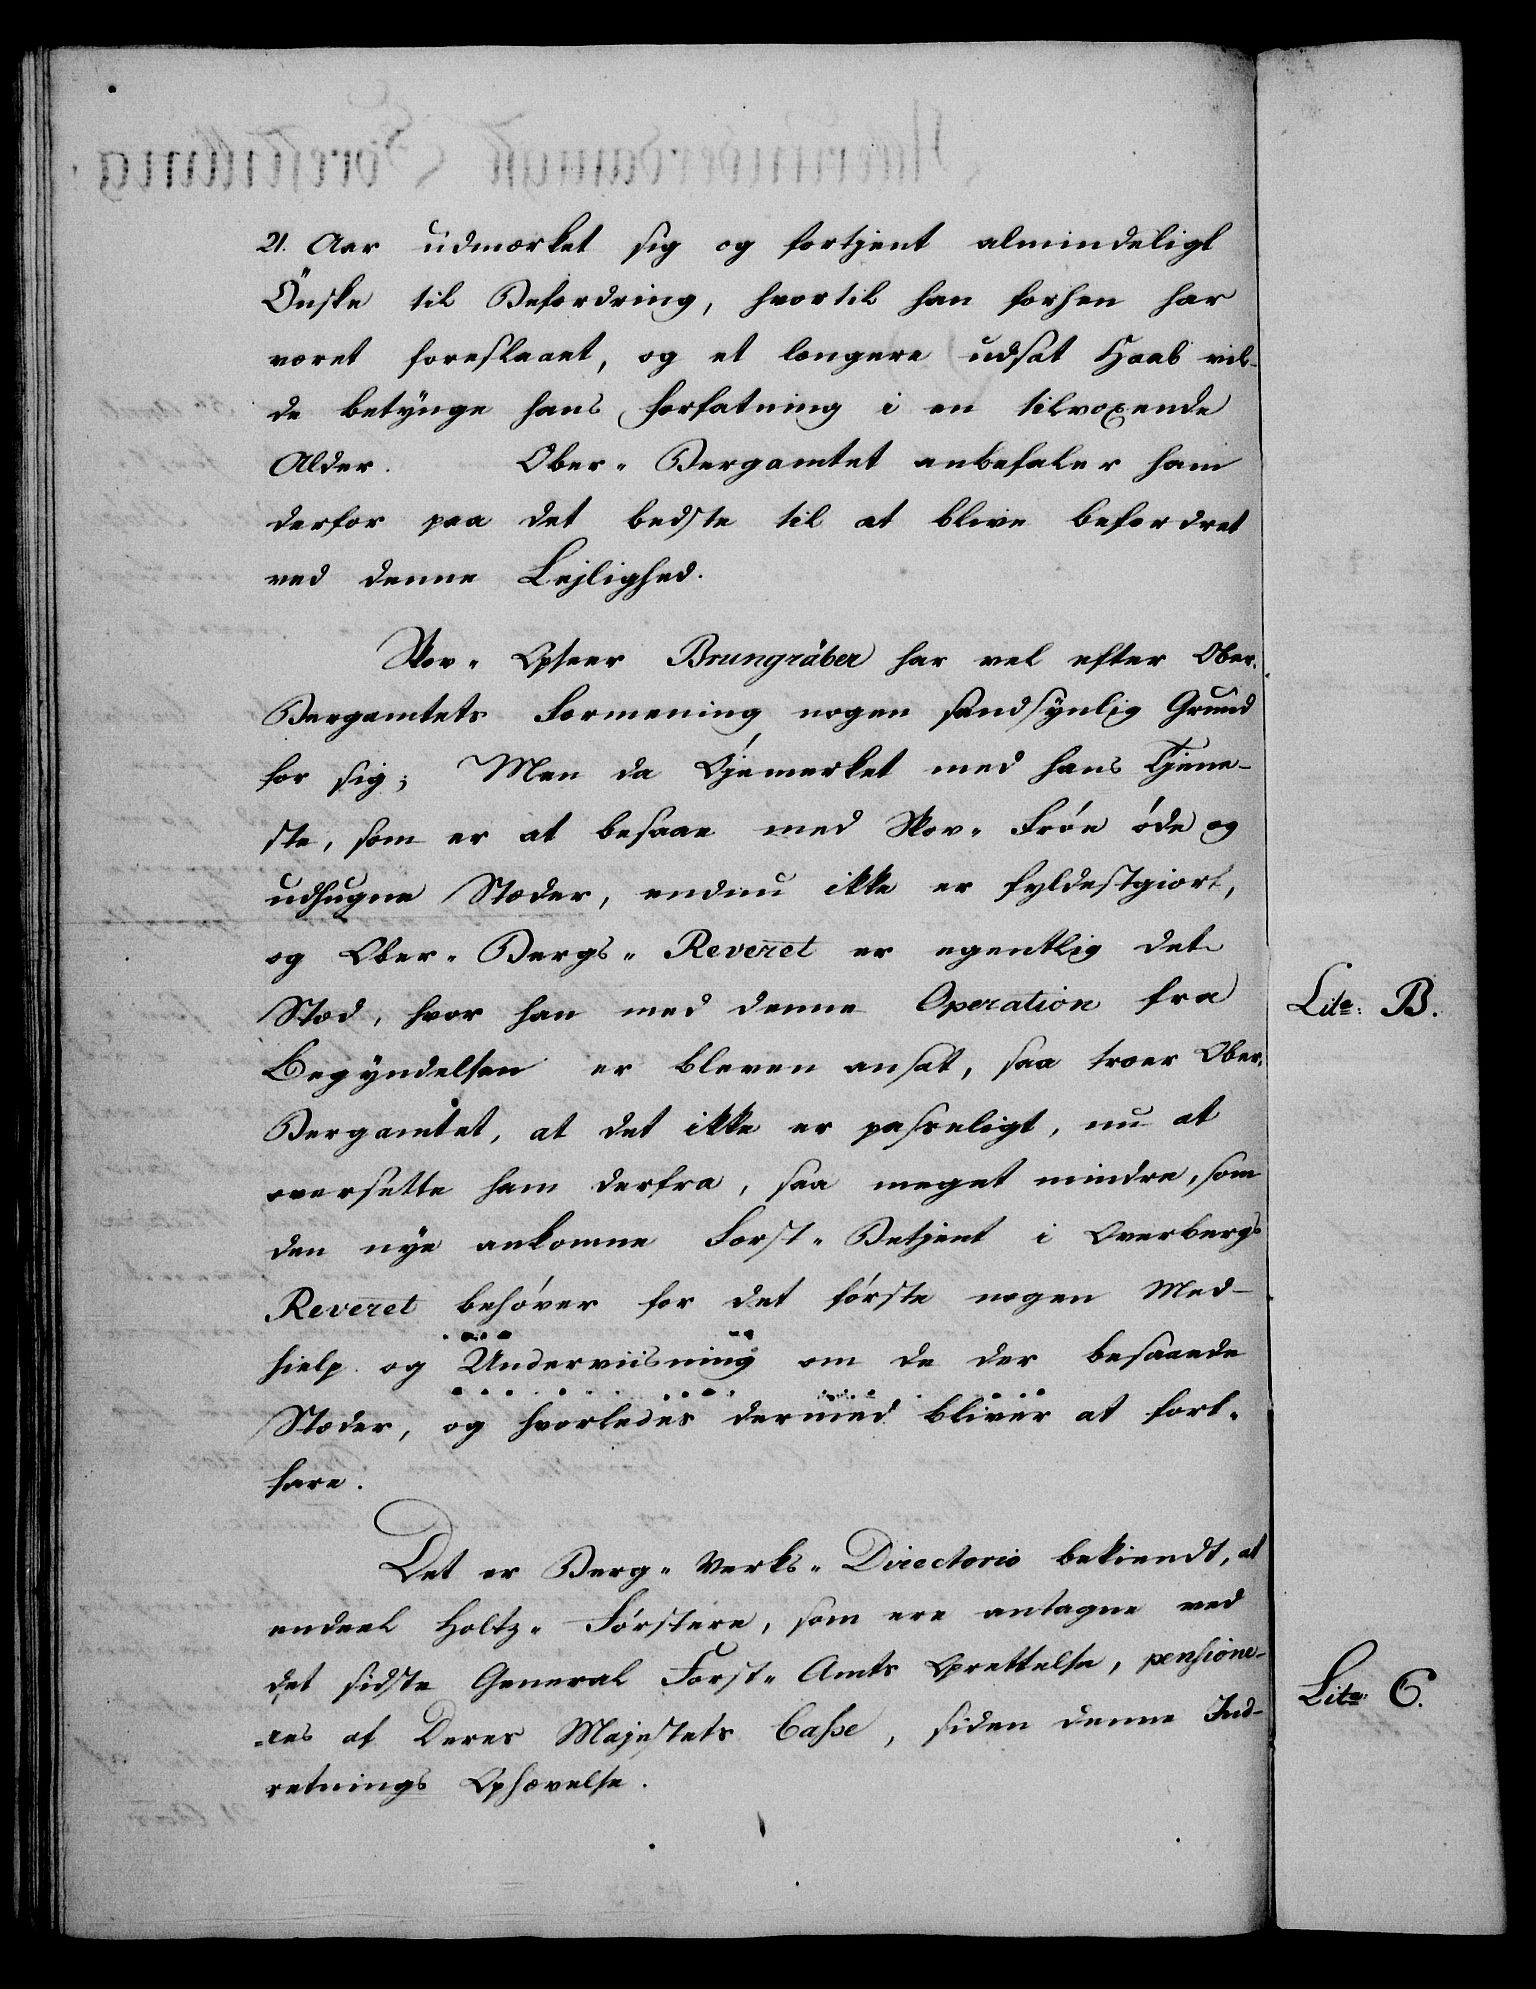 21. Aar udmærket sig og fortjent almindeligt
Önske til Befordring, hvortil han forhen har
været foreslaaet, og et længere udsat Haab vil-
de betynge hans Forfatning i en tilvoxende
Alder. Ober-Bergamtet anbefaler ham
derfor paa det bedste til at blive befordret
ved denne Lejlighed.
Skov- Opseer Brungräber har vel efter Ober-
Bergamtets Formening nogen sandsynlig Grund
for sig; Men da Öjemerket med hans Tjene-
ste, som er at besaae med Skov- Fröe öde og
udhugne Stæder, endnu ikke er fyldestgiort,
og Ober- Bergs- Reveret er egentlig det
Stæd, hvor han med denne Operation fra
Begyndelsen er bleven ansat, saa troer Ober-
Bergamtet, at det ikke er passeligt, nu at
oversette ham derfra, saa meget mindre, som
den nye ankomne Forst- Betjent i Overbergs
Reveret behöver for det förste nogen Med-
hielp og Underviisning om de der besaaede
Stæder, og hvorledes dermed bliver at fort-
fare.
Det er Berg- Verks- Directorio bekiendt, at
endeel Holtz- Förstere, som ere antagne ved
det sidste General Forst- Amts Oprettelse, pensione-
res af Deres Majestets Casse, siden denne Ind-
retnings Ophævelse.
Lite: B.
Lite: C.